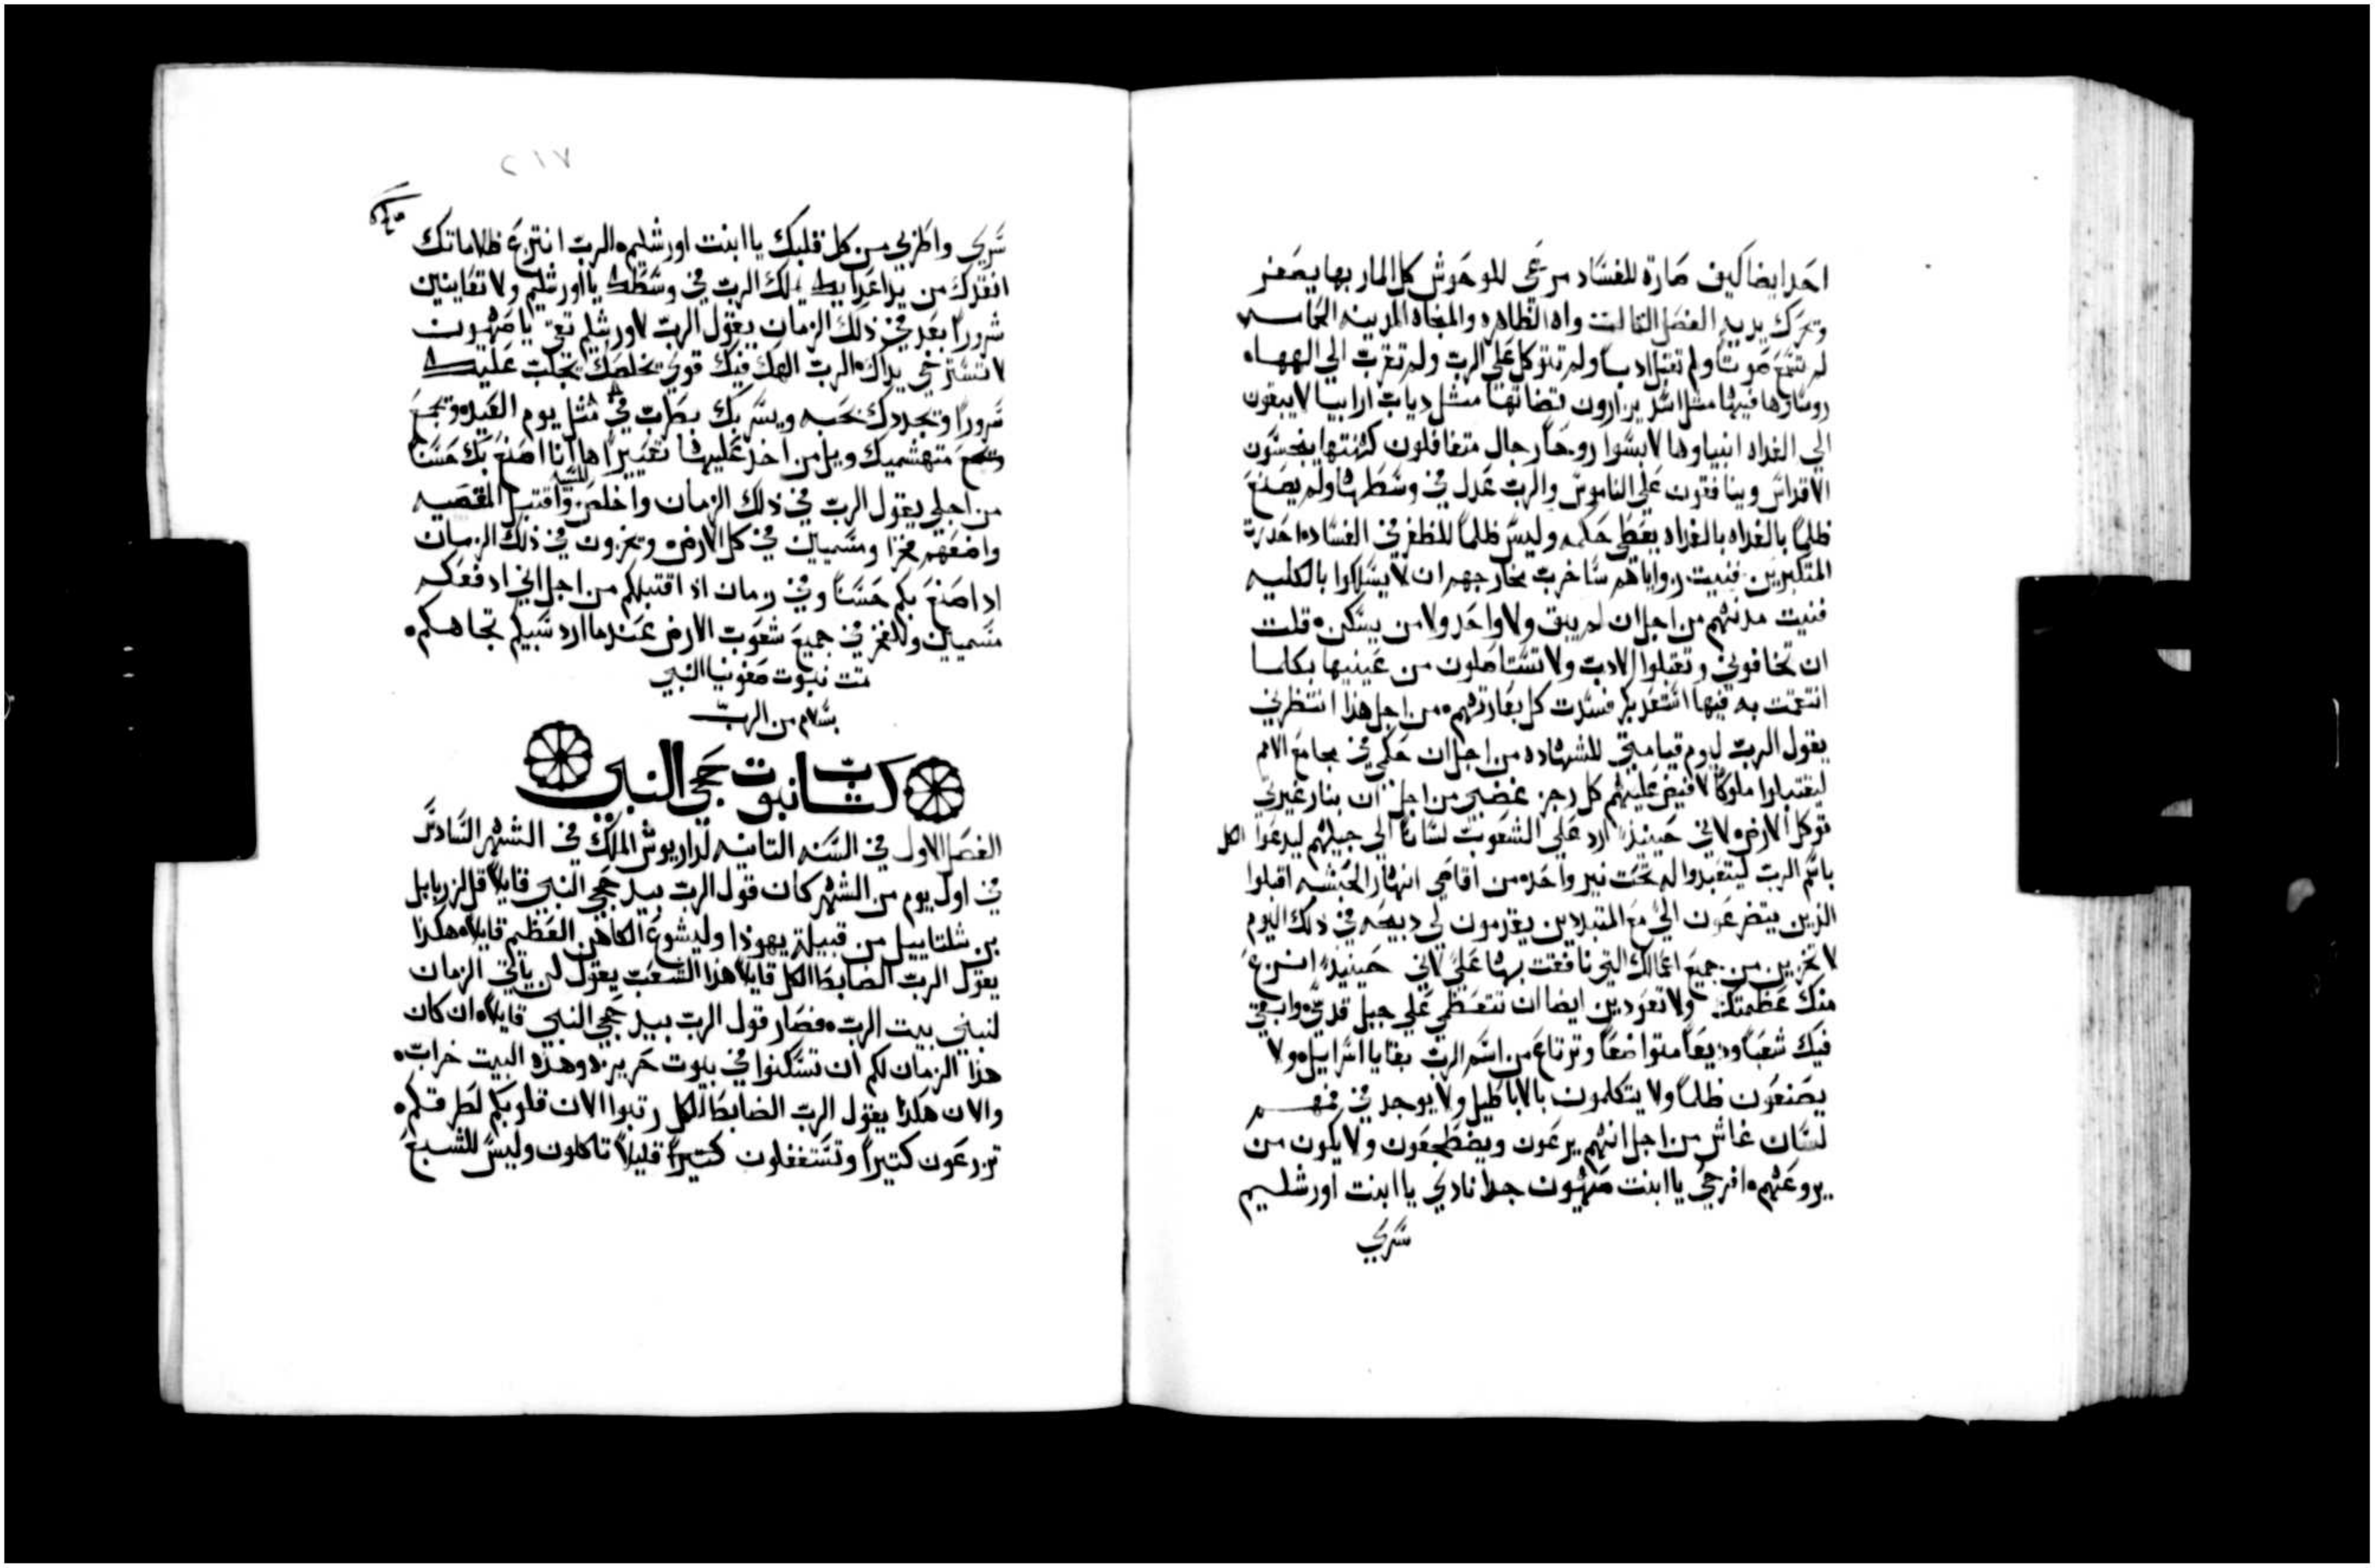 احد ايضا كيف صارة للفساد مرعي للوحوش كل المار بها يصفر
وتحرك يديه الفصل التالت واه الظاهره والمنجاه المدينه الحمامه
لم تسمع صوتا ولم تقبل ادبا ولم تتوكل علي الرب ولم تقرب الي الهها ٥
روساوها فيها مثل اسد يزارون قضاتها مثل دياب ارابيا لا يبقون
الي الغداه انبياوها لابسوا روحا رجال متغافلون كهنتها ينجسون
الاقداس وينافقون علي الناموس والرب عدل في وسطها ولم يصنع
ظلما بالغداه بالغداه يعطي حكمه وليس ظلما للظفر في الفساد ٥ احدرت
المتكبرين فنيت زواياهم ساخرب مخارجهم ان لا يسلكوا بالكليه
فنيت مدنهم من اجل ان لم يبق ولا واحد ولا من يسكن ٥ قلت
ان تخافوني وتقبلوا الادب ولا تستاصلون من عينيها بكلما
انتقمت به فيها استعد بكر فسدت كل بعارتهم ٥ من اجل هذا انتظرني
يقول الرب ليوم قيامتي للشهاده من اجل ان حكمي في مجامع الامم
ليقتبلوا ملوكا لافيض عليهم كل رجز غضبي من اجل ان بنار غيرتي
توكل الارض ٥ لاني حينيذ ارد علي الشعوب لسانا الي جيلهم ليدعوا الكل
باسم الرب ليتعبدوا له تحت نير واحد ٥ من اقاصي انهار الحبشه اقبلوا
الذين يتضرعون الي مع المتبددين يقدمون لي دبيحه في ذلك اليوم
لا تخزين من جميع اعمالك التي نافقت بها علي لاني حينيذ انزع
منك عظمتك ولا تعودين ايضا ان تتعظمي علي جبل قدسي وابقي
فيك شعبا وديعا متواضعا وترتاع من اسم الرب بقايا اسراييل ٥ ولا
يصنعون ظلما ولا يتكلمون بالاباطيل ولا يوجد في فمهم
لسان غاش من اجل انهم يرعون ويضطجعون ولا يكون من
يروعهم ٥ افرحي يا ابنت صهيون جدا نادي يا ابنت اورشليم
سري
٢١٧
سري واطربي من كل قلبك يا ابنت اورشليم ٥ الرب انتزع ظلاماتك
انقذك من يد اعدايك ملك الرب في وسطك يا اورشليم ولا تعاينين
شرورا بعد في ذلك الزمان يقول الرب لاورشليم تقي يا صهيون
لا تسترخي يداك ٥ الرب الهك فيك قوي يخلصك يجلب عليك
سرورا وتجددك بحبه ويسر بك بطرب في مثل يوم العيد ٥ وتجمع
متهشميك ويل من اخذ عليها تعييرا ها انا اصنع بك حسنا
من اجلي يقول الرب في ذلك الزمان واخلص واقتبل المقصيه
واضعهم فخرا ومسميين في كل الارض ٥ وتخزون في ذلك الزمان
اذ اصنع بكم حسنا وفي زمان اذ اقتبلكم من اجل اني ادفعكم
مسميين وللفخر في جميع شعوب الارض عندما ارد سبيكم تجاهكم ٥
تمت نبوت صفونيا النبي
بسلام من الرب
كتاب نبوت حجي النبي
الفصل الاول في السنه التانيه لداريوش الملك في الشهر السادس
في اول يوم من الشهر كان قول الرب بيد حجي النبي قايلا قل لزربابل
بن شلتاييل من قبيلة يهوذا وليشوع الكاهن العظيم قايلا ٥ هكذا
يقول الرب الضابط الكل قايلا هذا الشعب يقول لن ياتي الزمان
لنبني بيت الرب ٥ فصار قول الرب بيد حجي النبي قايلا ٥ ان كان
هذا الزمان لكم ان تسكنوا في بيوت حريزه وهذه البيت خراب ٥
والان هكذا يقول الرب الضابط الكل رتبوا الان قلوبكم لطرقكم ٥
تزرعون كتيرا وتستغلون كتيرا قليلا تاكلون وليس للشبع